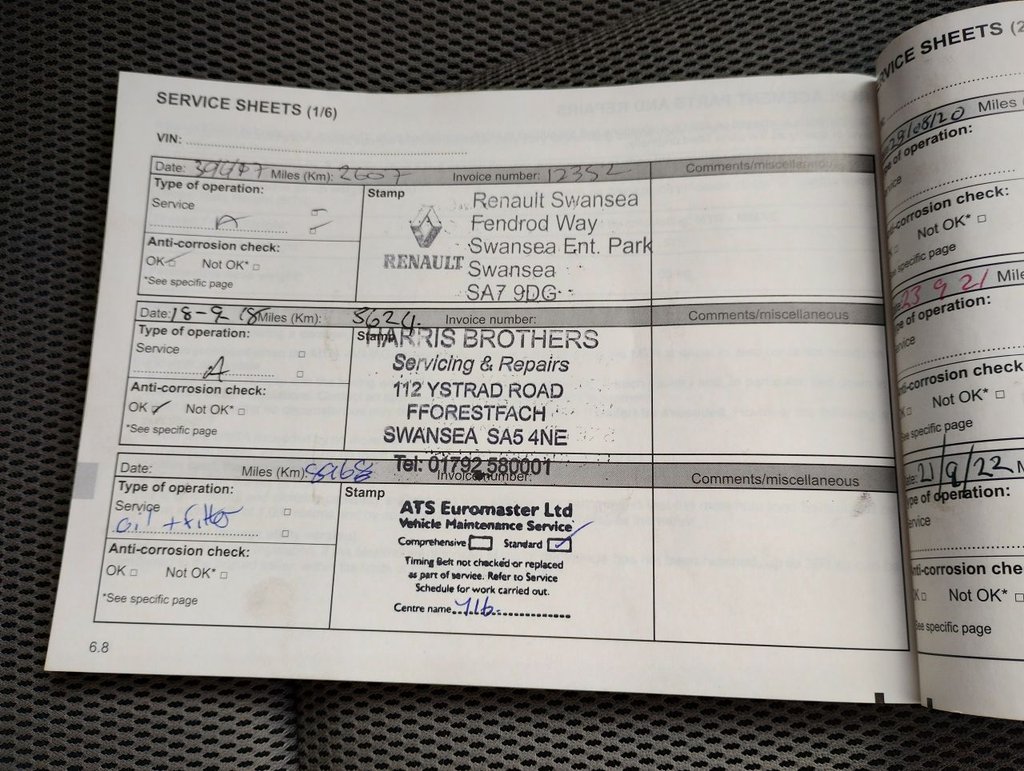 SERVICE SHEETS (1/6)
VIN:
Date: Miles (Km): 2607 Invoice number: 12352 Comments/miscellaneous
Type of operation: Stamp
Service
A
Anti-corrosion check:
OK Not OK*
*See specific page
RENAULT
Renault Swansea
Fendrod Way
Swansea Ent. Park
Swansea
SA7 9DG
Date: 18-9-18 Miles (Km): 3624 Invoice number: Comments/miscellaneous
Type of operation: Stamp
Service
A
Anti-corrosion check:
OK ✓ Not OK*
*See specific page
HARRIS BROTHERS
Servicing & Repairs
112 YSTRAD ROAD
FFORESTFACH
SWANSEA SA5 4NE
Tel: 01792 580001
Date: Miles (Km): 8968 Invoice number: Comments/miscellaneous
Type of operation: Stamp
Service
oil + filter
Anti-corrosion check:
OK Not OK*
*See specific page
ATS Euromaster Ltd
Vehicle Maintenance Service
Comprehensive Standard ✓
Timing Belt not checked or replaced
as part of service. Refer to Service
Schedule for work carried out.
Centre name 716
6.8
RVICE SHEETS (2
29/06/20 Miles
pe of operation:
rvice
ti-corrosion check:
Not OK*
ee specific page
23 9 21 Mile
pe of operation:
rvice
ti-corrosion check:
K Not OK*
ee specific page
te: 21/9/22 M
pe of operation:
ervice
nti-corrosion che
K Not OK*
ee specific page